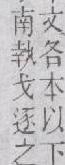 文各本以下
南執戈逐之